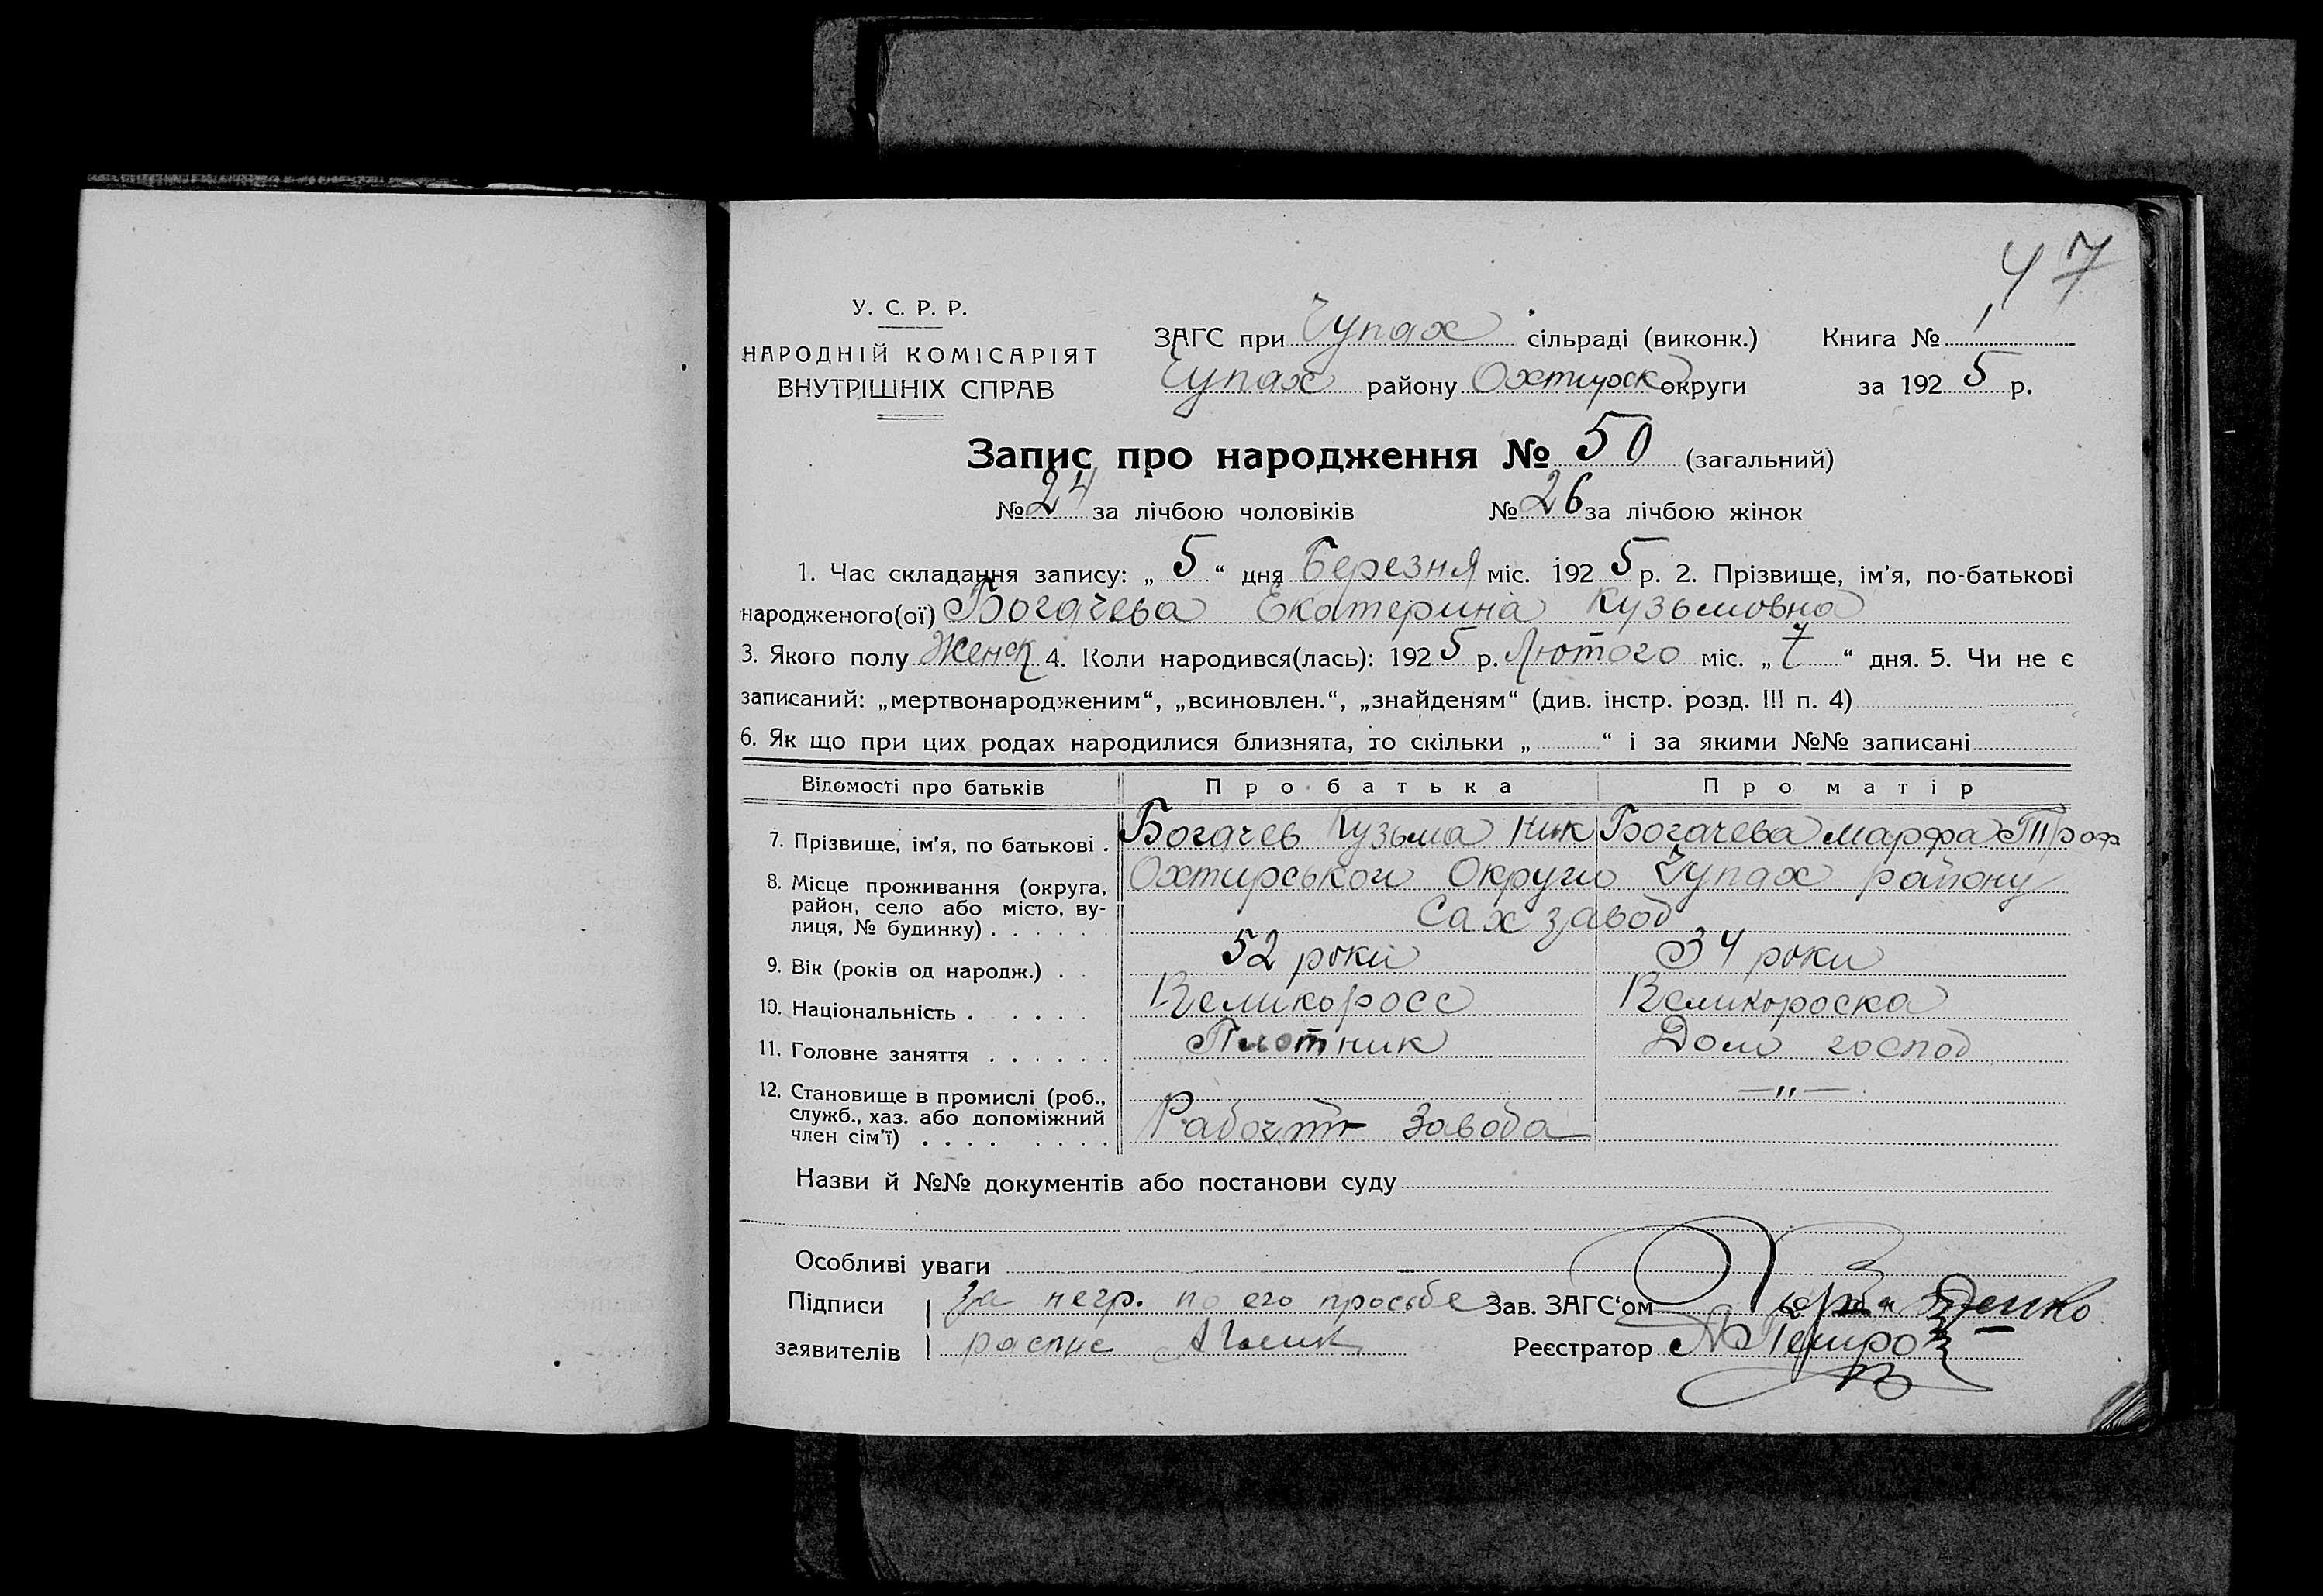 47
У. С. Р. Р.
НАРОДНІЙ КОМІСАРІЯТ
ВНУТРІШНІХ СПРАВ
ЗАГС при Чупах сільраді (виконк.) Книга № 1
Чупах району Охтирск округи за 1925 р.
Запис про народження № 50 (загальний)
№ 24 за лічбою чоловіків № 26 за лічбою жінок
1. Час складання запису: „5“ дня Березня міс. 1925 р. 2. Прізвище, ім’я, по-батькові
народженого(ої) Богачева Екатерина Кузьмовна
3. Якого полу Женск 4. Коли народився(лась): 1925 р. Лютого міс. „7“ дня. 5. Чи не є
записаний: „мертвонародженим“, „всиновлен.“, „знайденям“ (див. інстр. розд. III п. 4)
6. Як що при цих родах народилися близнята, то скільки „ “ і за якими №№ записані
Відомості про батьків Про батька Про матір
7. Прізвище, ім’я, по батькові . Богачев Кузьма Ник Богачева Марфа Троф
8. Місце проживання (округа, Охтирськои Округи Чупах району
район, село або місто, ву-
лиця, № будинку) . . . . . Сах завод
9. Вік (років од народж.) . . 52 роки 34 роки
10. Національність . . . . . Великоросс Великороска
11. Головне заняття . . . . . . Плотник Дом господ
12. Становище в промислі (роб., —"—
служб., хаз. або допоміжний
член сім’ї) . . . . . . . . Рабочий Завода
Назви й №№ документів або постанови суду
Особливі уваги
Підписи за негр. по его просьбе Зав. ЗАГС‘ом
заявителів распис Реєстратор